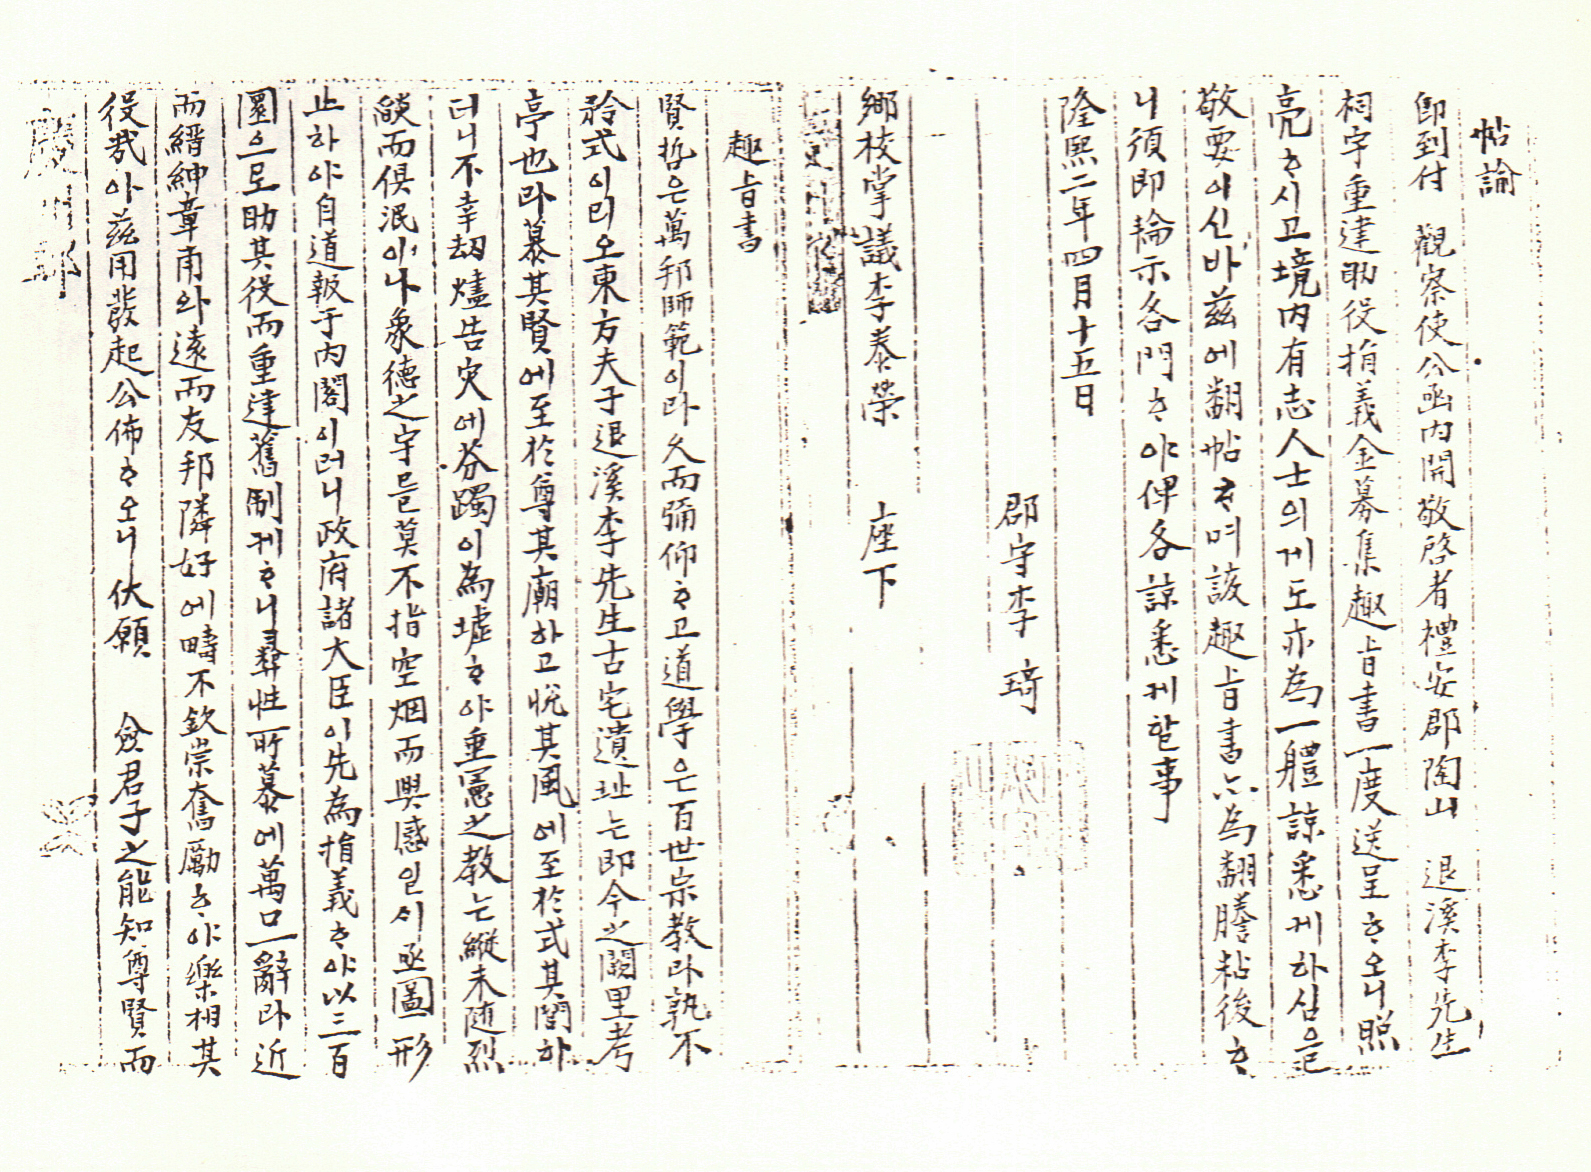 帖諭
卽到付 觀察使公函內開敬啓者禮安郡陶山 退溪李先生
祠宇重建助役捐義金募集趣旨書一度送呈ᄒᆞ오니照
亮ᄒᆞ시고境內有志人士의게도亦為一軆諒悉케하심을
敬要이신바玆에翻帖ᄒᆞ며該趣旨書亦為翻謄粘後ᄒᆞ
니須即輪示各門ᄒᆞ야俾各諒悉케할事
隆熙二年四月十五日
郡守李琦
鄕校掌議李泰榮 座下
趣旨書
賢哲은萬邦師範이라久而彌仰ᄒᆞ고道學은百世宗教라孰不
矜式이리오東方夫子退溪李先生古宅遺址는即今之闕里考
亭也라慕其賢에至於尊其廟하고悅其風에至於式其閭하
더니不幸刼燼告灾에芬躅이為墟ᄒᆞ야重寃之教는縱未随烈
燄而俱泯이나象德之宇를莫不指空烟而興感일시亟圖形
止하야自道報于內閣이러니政府諸大臣이先為捐義ᄒᆞ야以三百
圜으로助其役而重建舊制케ᄒᆞ니彛性所慕에萬口一辭라近
而縉紳章甫와遠而友邦隣好에疇不欽崇奮勵ᄒᆞ야樂相其
役哉아玆用發起公佈ᄒᆞ오니伏願 僉君子之能知尊賢而